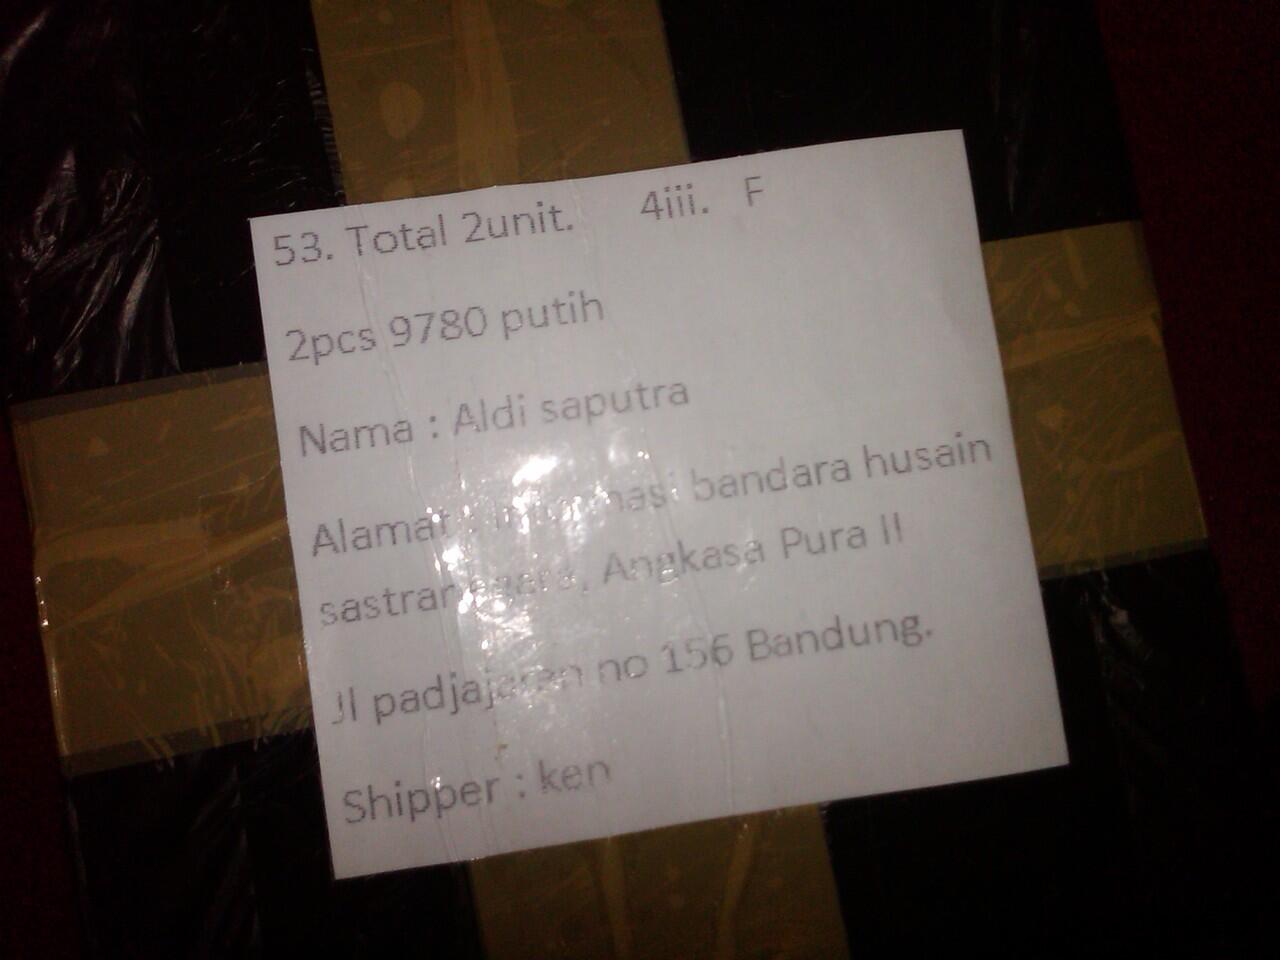 53. Total 2unit. 4iii. F
2pcs 9780 putih
Nama : Aldi saputra
Alamat : Informasi bandara husain
sastranegara, Angkasa Pura II
Jl padjajaran no 156 Bandung.
Shipper : ken